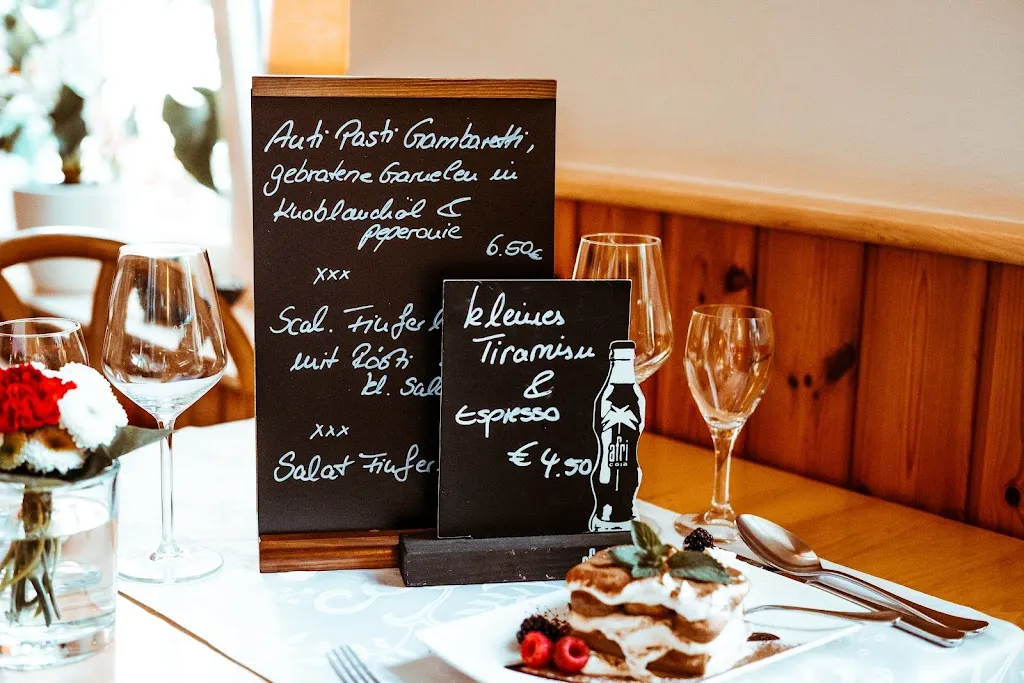 Anti Pasti Gambaretti,
gebratene Garnelen in
Knoblauchöl &
peperonie
6.50€
xxx
Scal. Finferl
mit Rösti
kl. Sala
xxx
Salat Finfer
kleines
Tiramisu
&
Espresso
€ 4.50
afri
cola